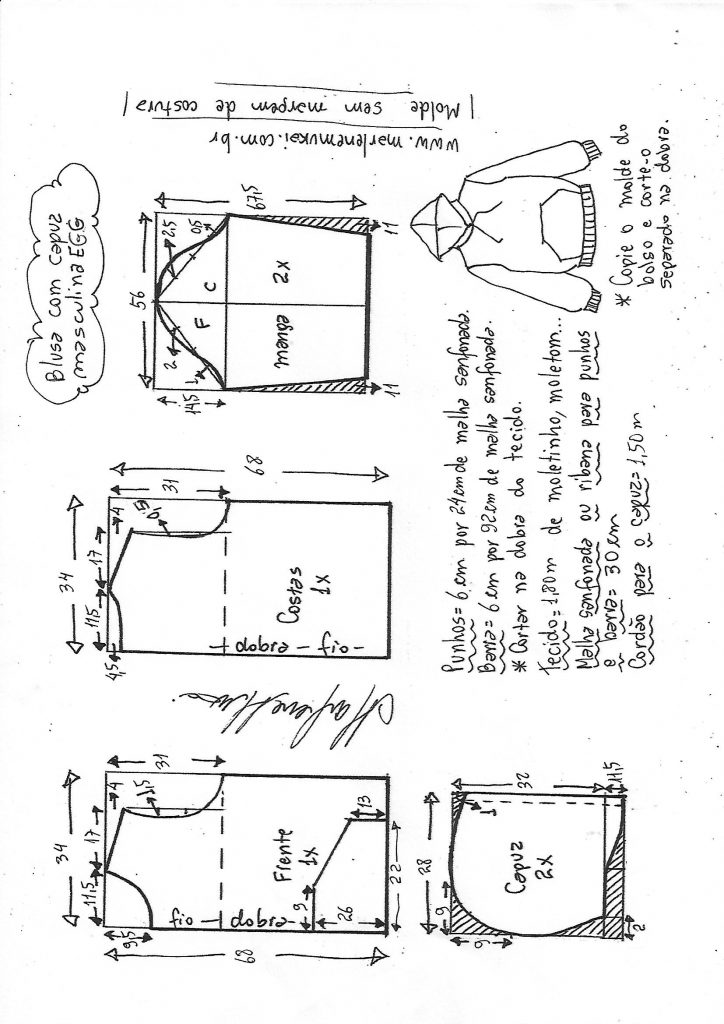 Blusa com capuz
masculina EGG
www.marlenemukai.com.br
| Molde sem margem de costura |
34
11,5
17
4
9,5
31
1,5
68
fio — dobra
Frente
1x
9
26
13
22
34
11,5
17
4
4,5
31
0,5
68
fio — dobra
Costas
1x
56
14,5
2
1
F
C
2,5
0,5
67,5
manga
2x
11
11
28
9
9
32
1
11,5
2
Capuz
2x
Punhos= 6 cm por 24 cm de malha sanfonada.
Barra= 6 cm por 92 cm de malha sanfonada.
* Cortar na dobra do tecido.
Tecido= 1,80 m de moletinho, moletom...
Malha sanfonada ou ribana para punhos
e barra= 30 cm
Cordão para o capuz= 1,50 m
* Copie o molde do
bolso e corte-o
separado na dobra.